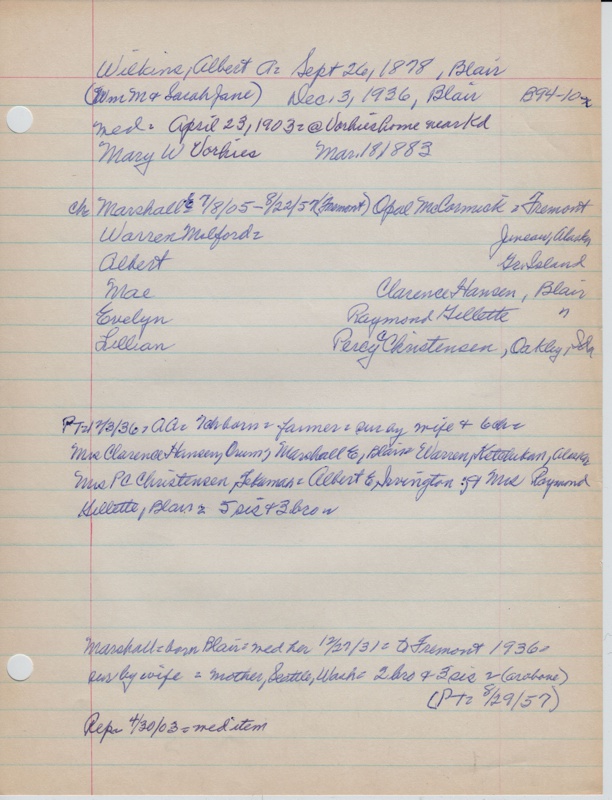 Wilkins, Albert A= Sept 26, 1878, Blair
(Wm M & Sarah Jane) Dec. 3, 1936, Blair B94-10-
med= April 23, 1903= @ Vorhies home near Kd
Mary W Vorhies Mar. 18, 1883
ch= Marshall E 7/8/05-8/22/57 (Fremont) Opal McCormick = Fremont
Warren Melford= Juneau, Alaska
Albert Gr. Island
Mae Clarence Hansen, Blair
Evelyn Raymond Gillette "
Lillian Percy C Christensen, Oakley,
PT=12/3/36= AA= Neb born= farmer= sur by wife & 6 ch=
Mrs Clarence Hansen, Orum, Marshall E, Blair= Warren, Ketchikan, Alaska
Mrs PC Christensen, Tekamah= Albert E, Irvington & Mrs Raymond
Gillette, Blair= 5 sis & 3 bro=
Marshall= born Blair= med her 12/27/31= to Fremont 1936=
sur by wife = mother, Seattle, Wash= 2 bro & 3 sis = (as above)
(PT= 8/29/57)
Rep= 4/30/03= med item